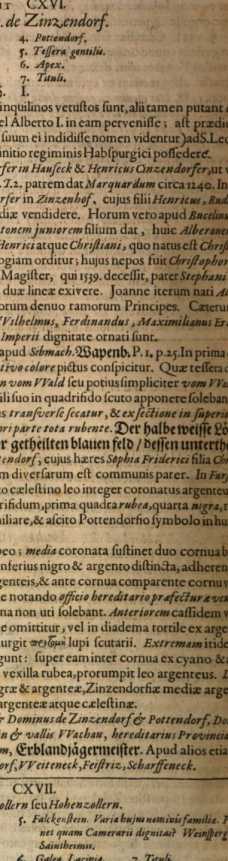 CXVI.
de Zinzendorf.
4. Pottendorf.
5. Tessera gentilis.
6. Apex.
7. Tituli.
§. I.
inquilinos vetustos sunt, alii tamen putant
el Alberto I. in eam pervenisse; ast prædic
suum ei indidisse nomen videntur) ad S. Leo
initio regiminis Habspurgici possederé.
rfer in Hauseck & Henricus Cinzendorfer, ut
. T. 2. patrem dat Marquardum circa 1240. In
rfer in Zinzenhof, cujus filii Henricus, Rud
diæ vendidere. Horum vero apud Bucelinu
tonem juniorem filium dat, huic Alberonem
Henrici atque Christiani, quo natus est Christ
ogiam orditur; hujus nepos fuit Christophor
Magister, qui 1539. decessit, pater Stephani
duæ lineæ exivere. Joanne iterum nati A
iorum denuo ramorum Principes. Cæterum
Wilhelmus, Ferdinandus, Maximilianus Er
Imperii dignitate ornati sunt.
apud Sebmach. Wapenb. P. 1. p. 25. In prima
tivo colore pictus conspicitur. Quæ tessera
n vom Wald seu potius simpliciter vom Wa
ili suo in quadrifido scuto apponere soleban
s transverse secatur, & ex sectione in superio
ri parte tota rubente. Der halbe weisse Lö
r getheilten blauen feld / dessen unterth
tendorf, cujus hæres Sophia Friderici filia Ch
m diversarum est communis pater. In Fur
to cælestino leo integer coronatus argenteus
rifidum, prima quadra rubea, quarta nigra, t
miliare, & ascito Pottendorfio symbolo in hu
peo; media coronata sustinet duo cornua b
inferius nigro & argento distincta, adheren
genteis, & ante cornua comparente cornu v
e notando officio hereditario præfecturæ ven
na non uti solebant. Anteriorem cassidem v
e omittitur, vel in diadema tortile ex arge
urgit lupi scutarii. Extremam itide
gunt: super eam inter cornua ex cyano &
vexilla rubea, prorumpit leo argenteus.
græ & argenteæ, Zinzendorfiæ mediæ arge
argenteæ atque cælestinæ.
r Dominus de Zinzendorf & Pottendorf, Do
in & vallis Wachau, hereditarius Provincia
m, Erblandjägermeister. Apud alios etia
orf, Weiteneck, Feistriz, Scharffeneck.
CXVII.
ollern seu Hohenzollern.
5. Falckenstein. Varia hujus nominis familiæ.
net quam Camerarii dignitas? Weinsperg
Saintheimii.
6. Galea Lacinia. 7. Tituli.